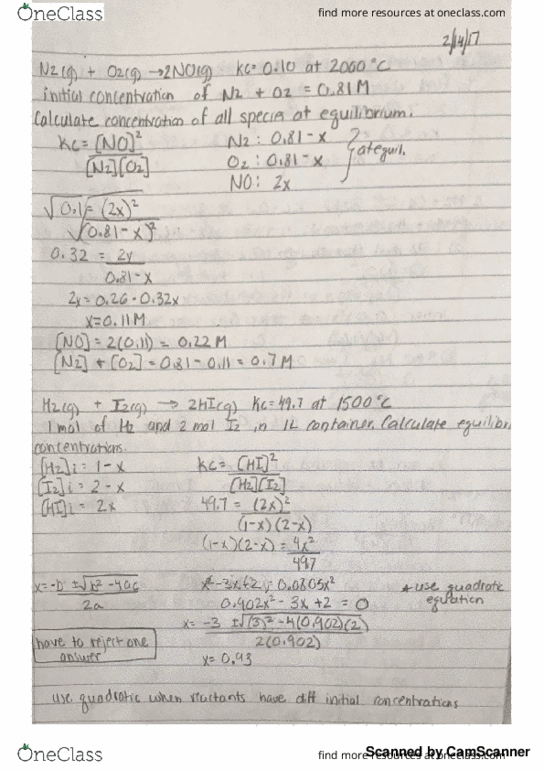 OneClass
find more resources at oneclass.com
2/14/17
N2(g) + O2(g) → 2NO(g) Kc = 0.10 at 2000 °C
initial concentration of N2 + O2 = 0.81 M
Calculate concentration of all species at equilibrium.
Kc = [NO]²
[N2][O2]
N2 : 0.81 - x
O2 : 0.81 - x
NO : 2x
} at equil.
√0.1 = (2x)²
√(0.81 - x)²
0.32 = 2x
0.81 - x
2x = 0.26 - 0.32x
x = 0.11 M
[NO] = 2(0.11) = 0.22 M
[N2] + [O2] = 0.81 - 0.11 = 0.7 M
H2(g) + I2(g) → 2HI(g) Kc = 49.7 at 1500 °C
1 mol of H2 and 2 mol I2 in 1L container. Calculate equilibri
concentrations.
[H2]i = 1 - x
[I2]i = 2 - x
[HI]i = 2x
Kc = [HI]²
[H2][I2]
49.7 = (2x)²
(1-x)(2-x)
(1-x)(2-x) = 4x²
49.7
x = -b ± √b² - 4ac
2a
x² - 3x + 2 = 0.0805x²
0.902x² - 3x + 2 = 0
* use quadratic
equation
x = -3 ± √(3)² - 4(0.902)(2)
2(0.902)
x = 0.93
have to reject one
answer
use quadratic when reactants have diff initial concentrations
OneClass
find more resources at oneclass.com
Scanned by CamScanner